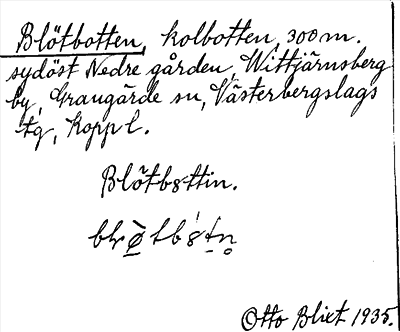 Blötbotten, kolbotten, 300 m.
sydöst Nedre gården, Wittjärnsberg
by, Grangärde sn, Västerbergslags
tg, Koppl.
Blötbottin.
Otto Blixt 1935.